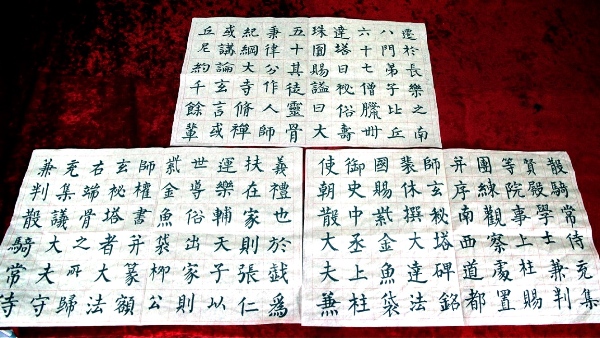 散騎常侍充集
賢殿學士兼判
等院事上柱賜
團練觀察處置
并序南西道都
師玄秘塔碑銘
裝休撰大達法
國賜紫金魚袋
御史中丞上柱
使朝散大夫兼
義禮也於戯為
扶在家則張仁
運樂輔天子以
世導俗出家則
紫金魚袋柳公
師權書并篆額
玄秘塔者大法
右端骨之所歸
充集議大夫守
兼判散騎常侍
遷於長樂之南
八門弟子比丘
六十七僧臘卌
達塔曰秘俗壽
珠圓賜謚曰大
五十其徒靈骨
秉律公作人師
紀綱大寺脩禪
或講論玄言或
丘尼約千餘輩